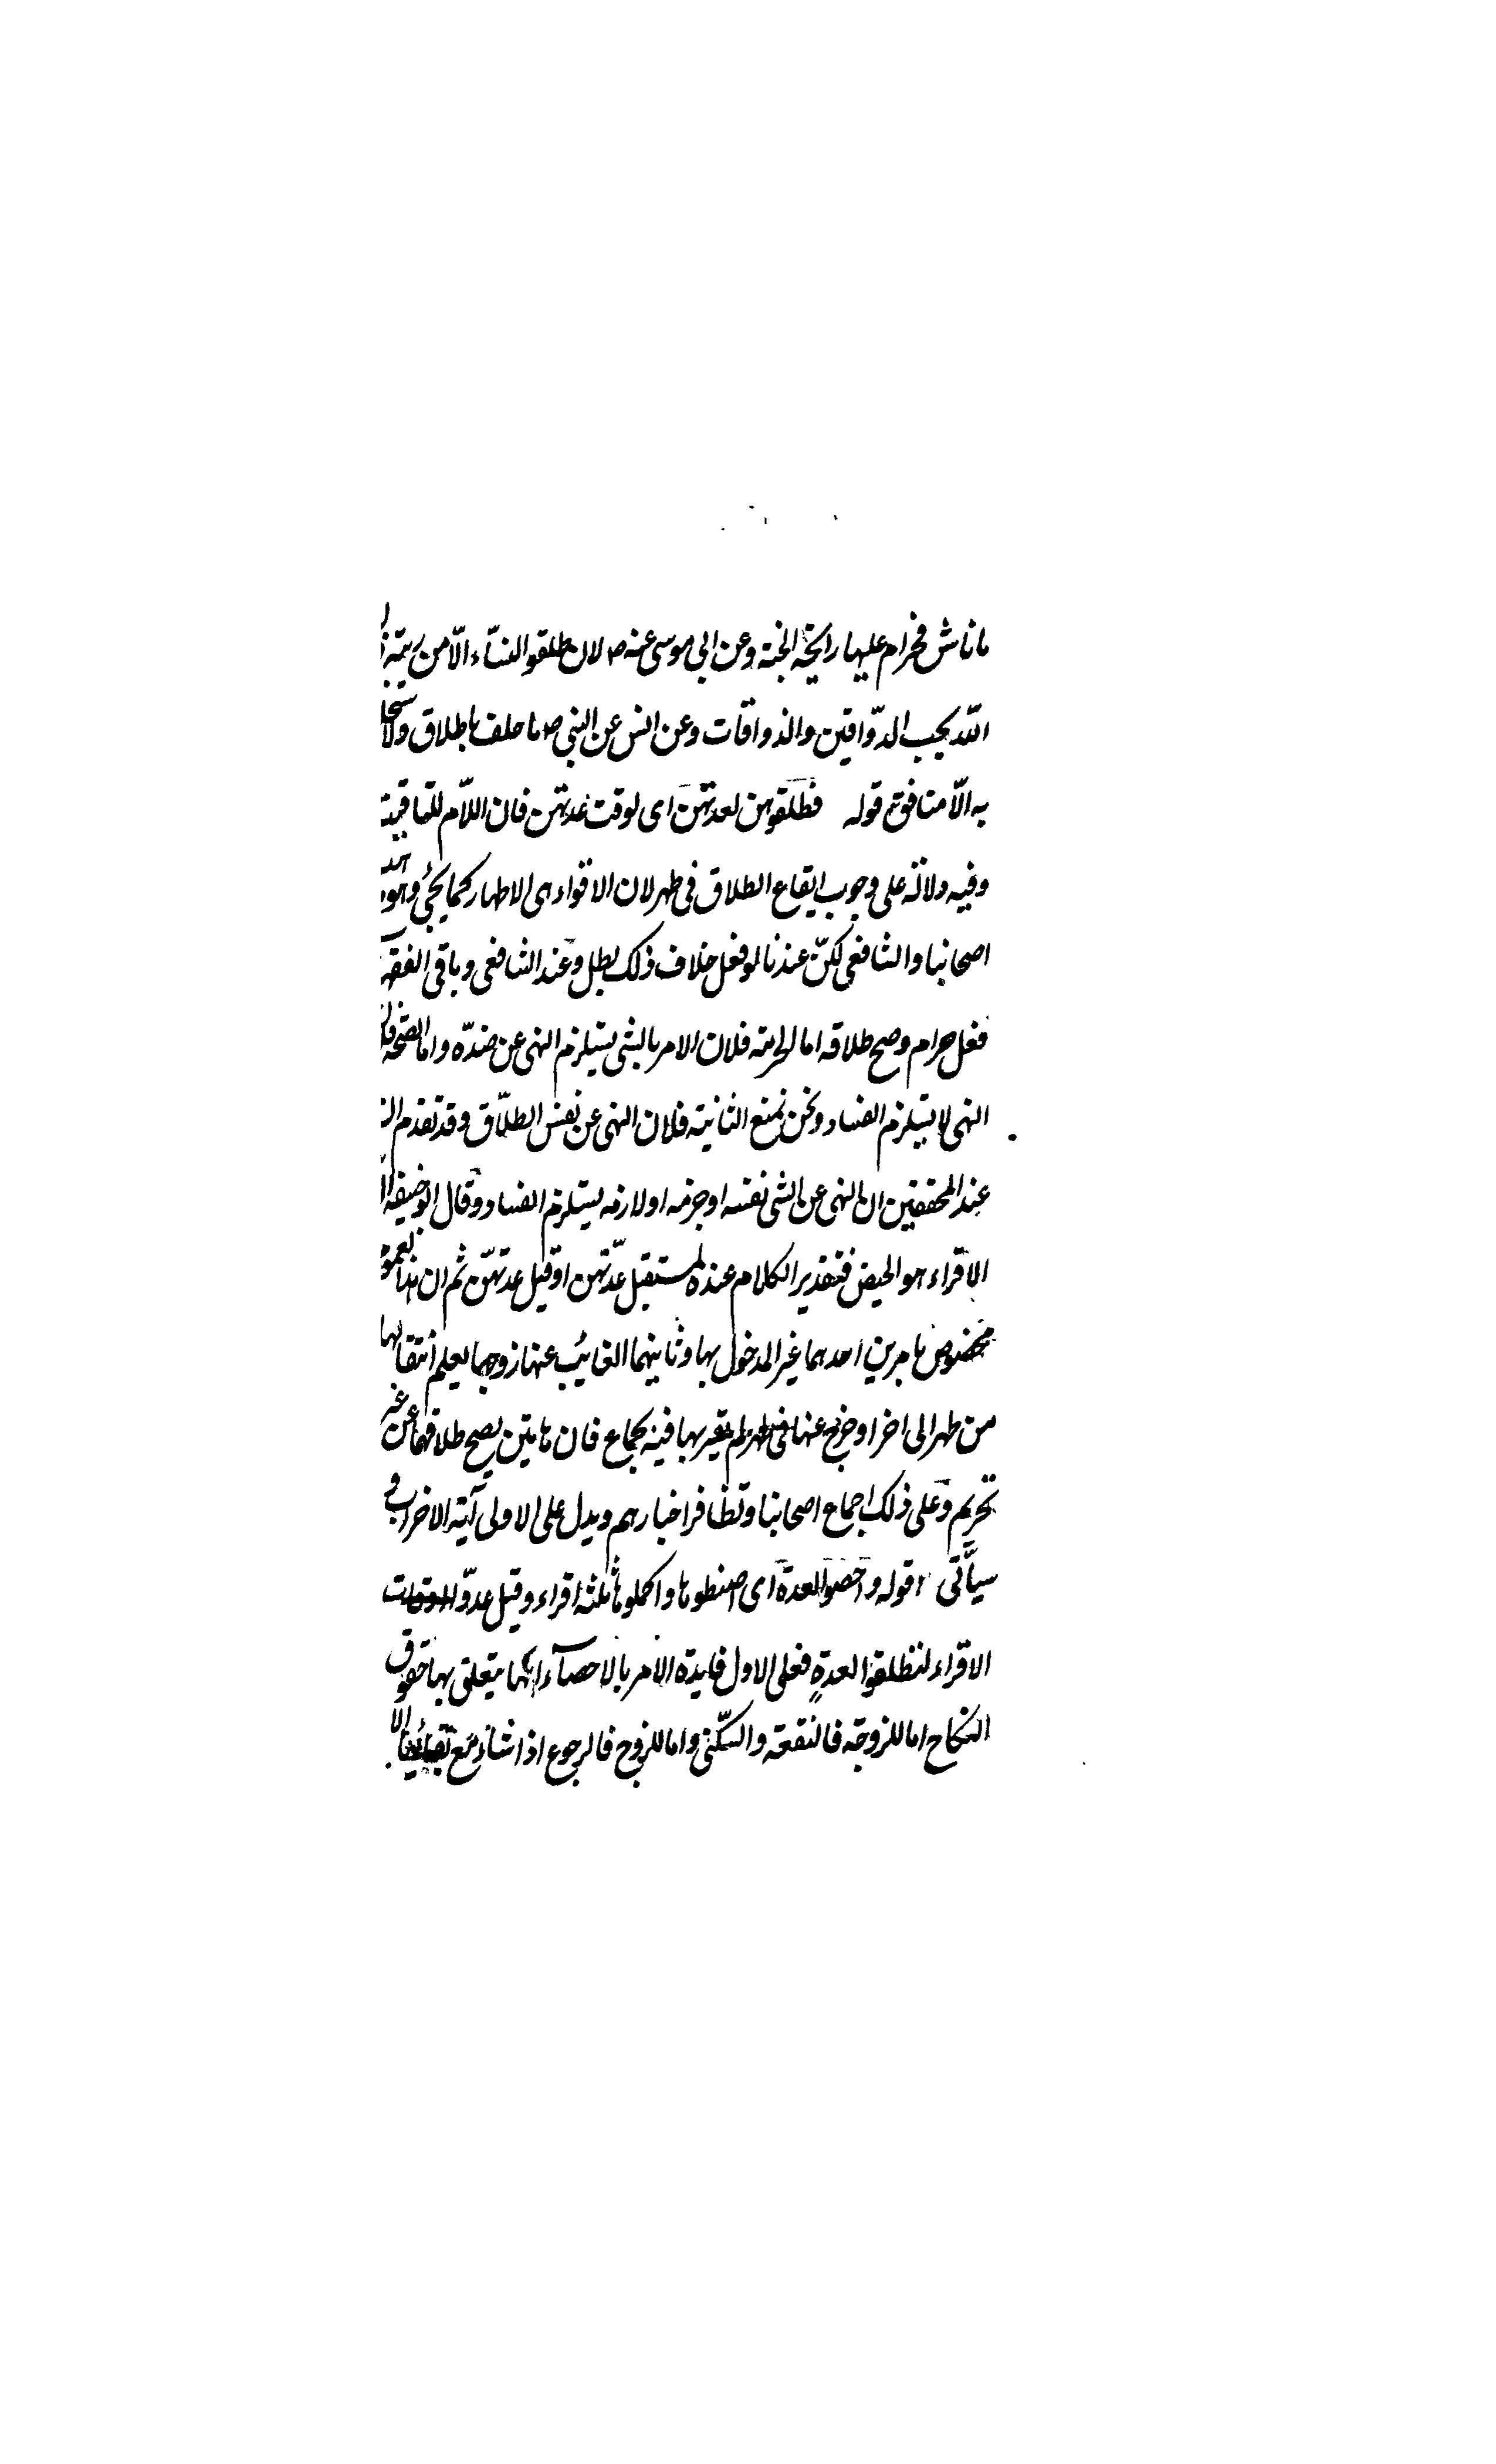 ماباش فحرام عليها رايحة الجنة وعن ابي موسى عنه ص لان طلقو النساء الّا من ريبة
اللّه يحب الدوّاقين والذواقات وعن انس عن النبي ص ما حلف باطلاق ولا استحلف
به الّا منافق ٣ قوله فطلقوهن لعدتهن اى لوقت عدتهن فان اللاّم للتاقيت
وفيه دلالة على وجوب ايقاع الطلاق فى طهر لان الاقراء هى الاطهار كما يجئ وهو
اصحابنا والشافعى لكنّ عندنا لو فعل خلاف ذلك بطل وعند الشافعى وباقى الفقه
فعل حرام وصح طلاقه اما الحرمته فلان الامر بالشى يستلزم النهى عن ضدّه واما الصحة
النهى لا يستلزم الفساد ونحن نمنع الثانية فلان النهى عن نفس الطلاّق وقد تقدم
عند المحققين ان النهى عن الشى نفسه او جزئه او لازمه يستلزم الفساد وقال ابو حنيفه
الاقراء هو الحيض فتقدير الكلام عنده لمستقبل عدّتهن او قبل عدتهنّ ثم ان هذا لعموم
مخصوص بامرين احدهما غير المدخول بها وثانيهما الغائب عنها زوجها يعلم انتقالها
من طهر الى اخر او خرج عنها فى طهر لم يقربها فيه بجماع فان هاتين يصح طلاقهما عن غير
تحريم وعلى ذلك اجماع اصحابنا وتظافر اخبارهم ويدل على الاولى آية الاخراب فى
سيأتى ٤ قوله واحصوا العدة اى اضبطوها واكملوها ثلثه اقراء وقيل عدّوا اوقات
الاقراء لتطلقوا لعدةٍ فعلى الاول فايدة الامر بالاحصآء انها يتعلق بها حقوق
النكاح اما للزوجة فالنفقة والسكنى واما للزوج فالرجوع اذا شاء مع